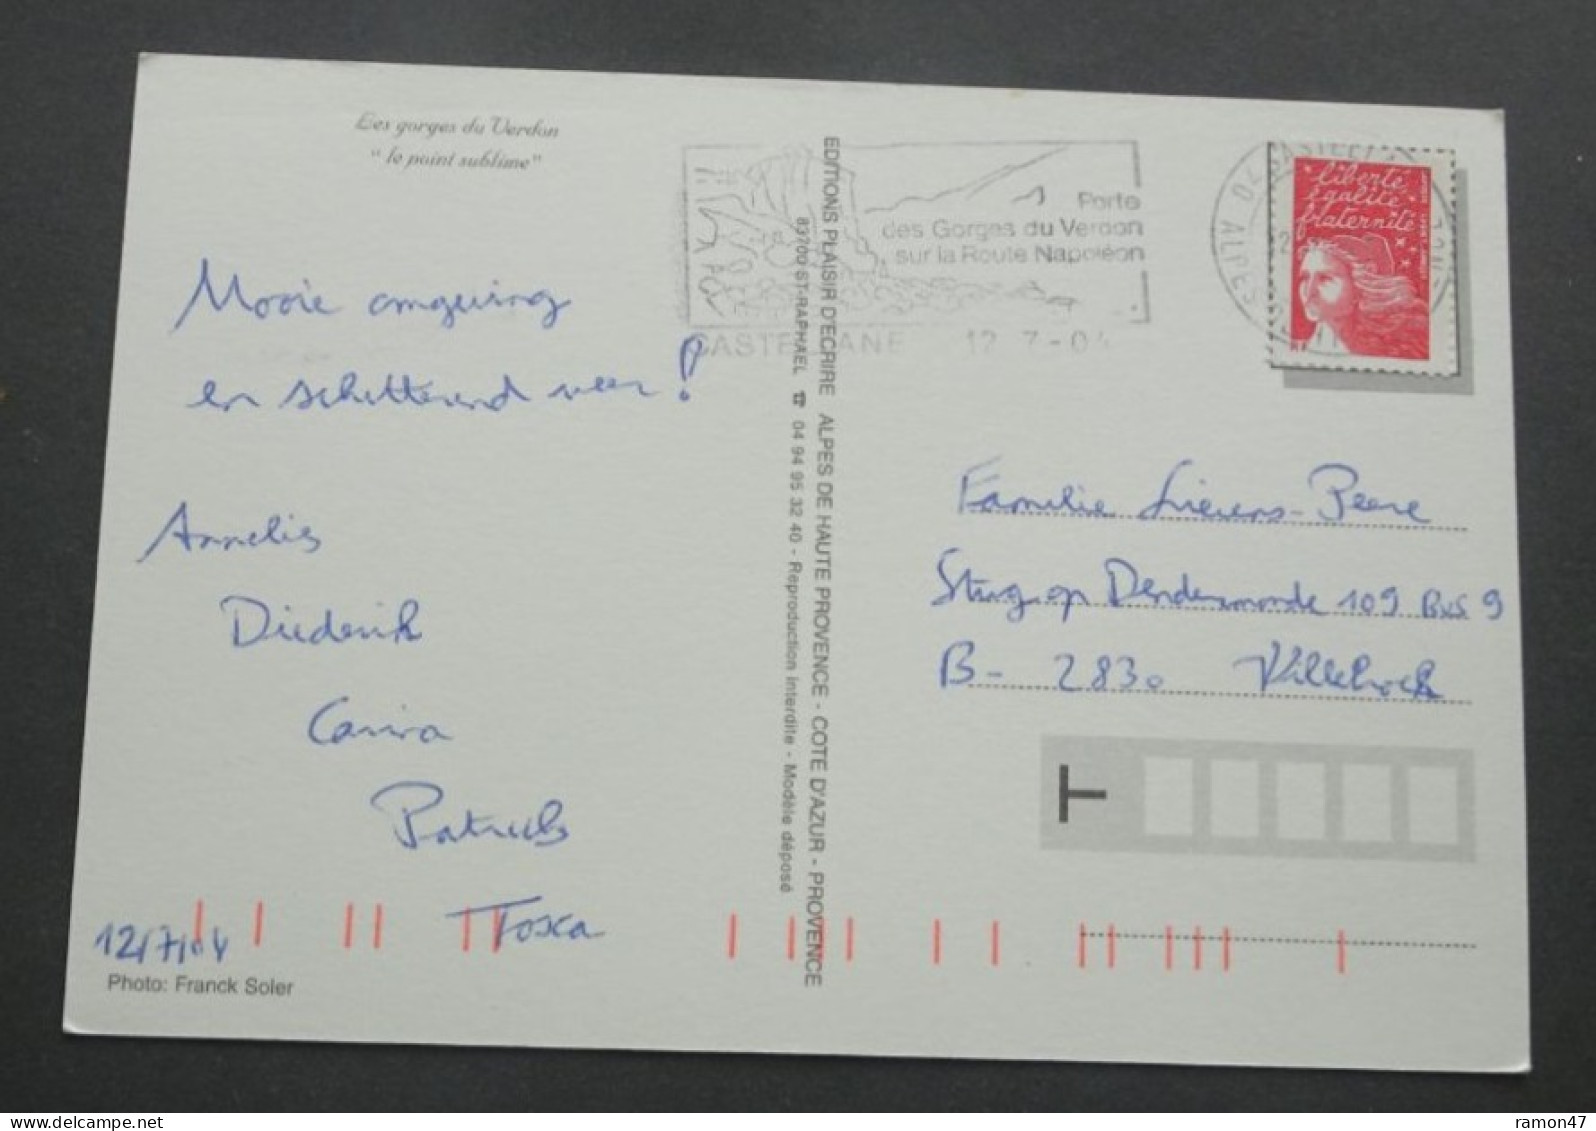 Les gorges du Verdon
"le point sublime"
Mooie omgeving
en schitterend weer!
Annelies
Diederik
Carina
Patrick
Tosca
12/7/04
Photo: Franck Soler
EDITIONS PLAISIR D'ECRIRE ALPES DE HAUTE PROVENCE - COTE D'AZUR - PROVENCE
83700 ST-RAPHAEL ☎ 04 94 95 32 40 - Reproduction interdite - Modèle déposé
Porte
des Gorges du Verdon
sur la Route Napoléon
CASTELLANE 12 7-04
liberté
égalité
fraternité
RF
Familie Lievens-Peere
Stwg op Dendermonde 109 Bus 9
B- 2830 Willebroek
T
ramon47